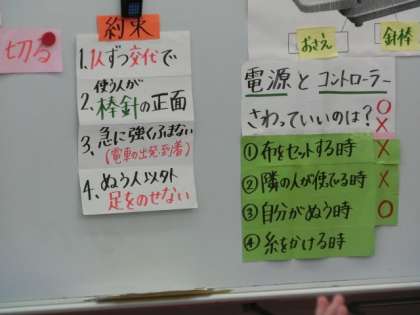 切る
約束
1. 1人ずつ交代で
2. 使う人が
棒針の正面
3. 急に強くふまない
(電車の出発・到着)
4. ぬう人以外
足をのせない
おさえ
針棒
電源とコントローラー
さわっていいのは?
○
×
①布をセットする時
×
②隣の人が使ってる時
×
③自分がぬう時
○
④糸をかける時